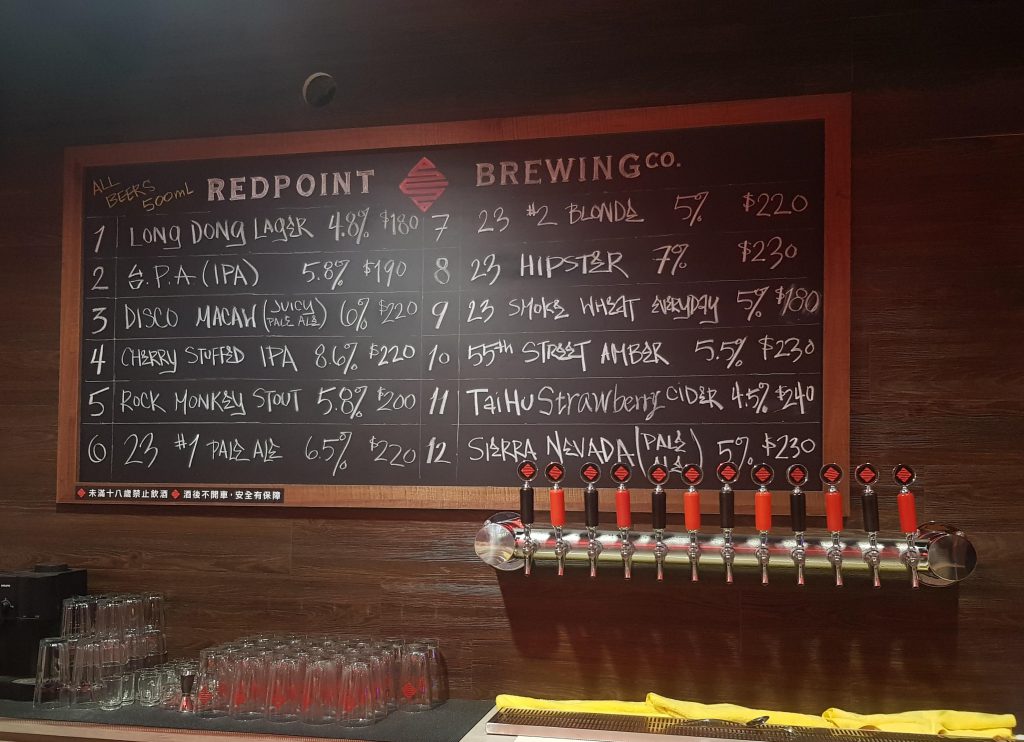 ALL
BEERS
500ML
REDPOINT BREWING CO.
1 LONG DONG LAGER 4.8% $180
2 台.P.A (IPA) 5.8% $190
3 DISCO MACAW (JUICY PALE ALE) 6% $220
4 CHERRY STUFFED IPA 8.6% $220
5 ROCK MONKEY STOUT 5.8% $200
6 23 #1 PALE ALE 6.5% $220
7 23 #2 BLONDE 5% $220
8 23 HIPSTER 7% $230
9 23 SMOKE WHEAT EVERYDAY 5% $180
10 55th STREET AMBER 5.5% $230
11 TaiHu Strawberry CIDER 4.5% $240
12 SIERRA NEVADA (PALE ALE) 5% $230
未滿十八歲禁止飲酒 酒後不開車,安全有保障